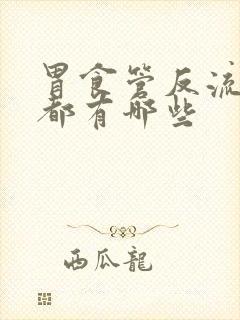 胃食管反流
都有哪些
西瓜龍